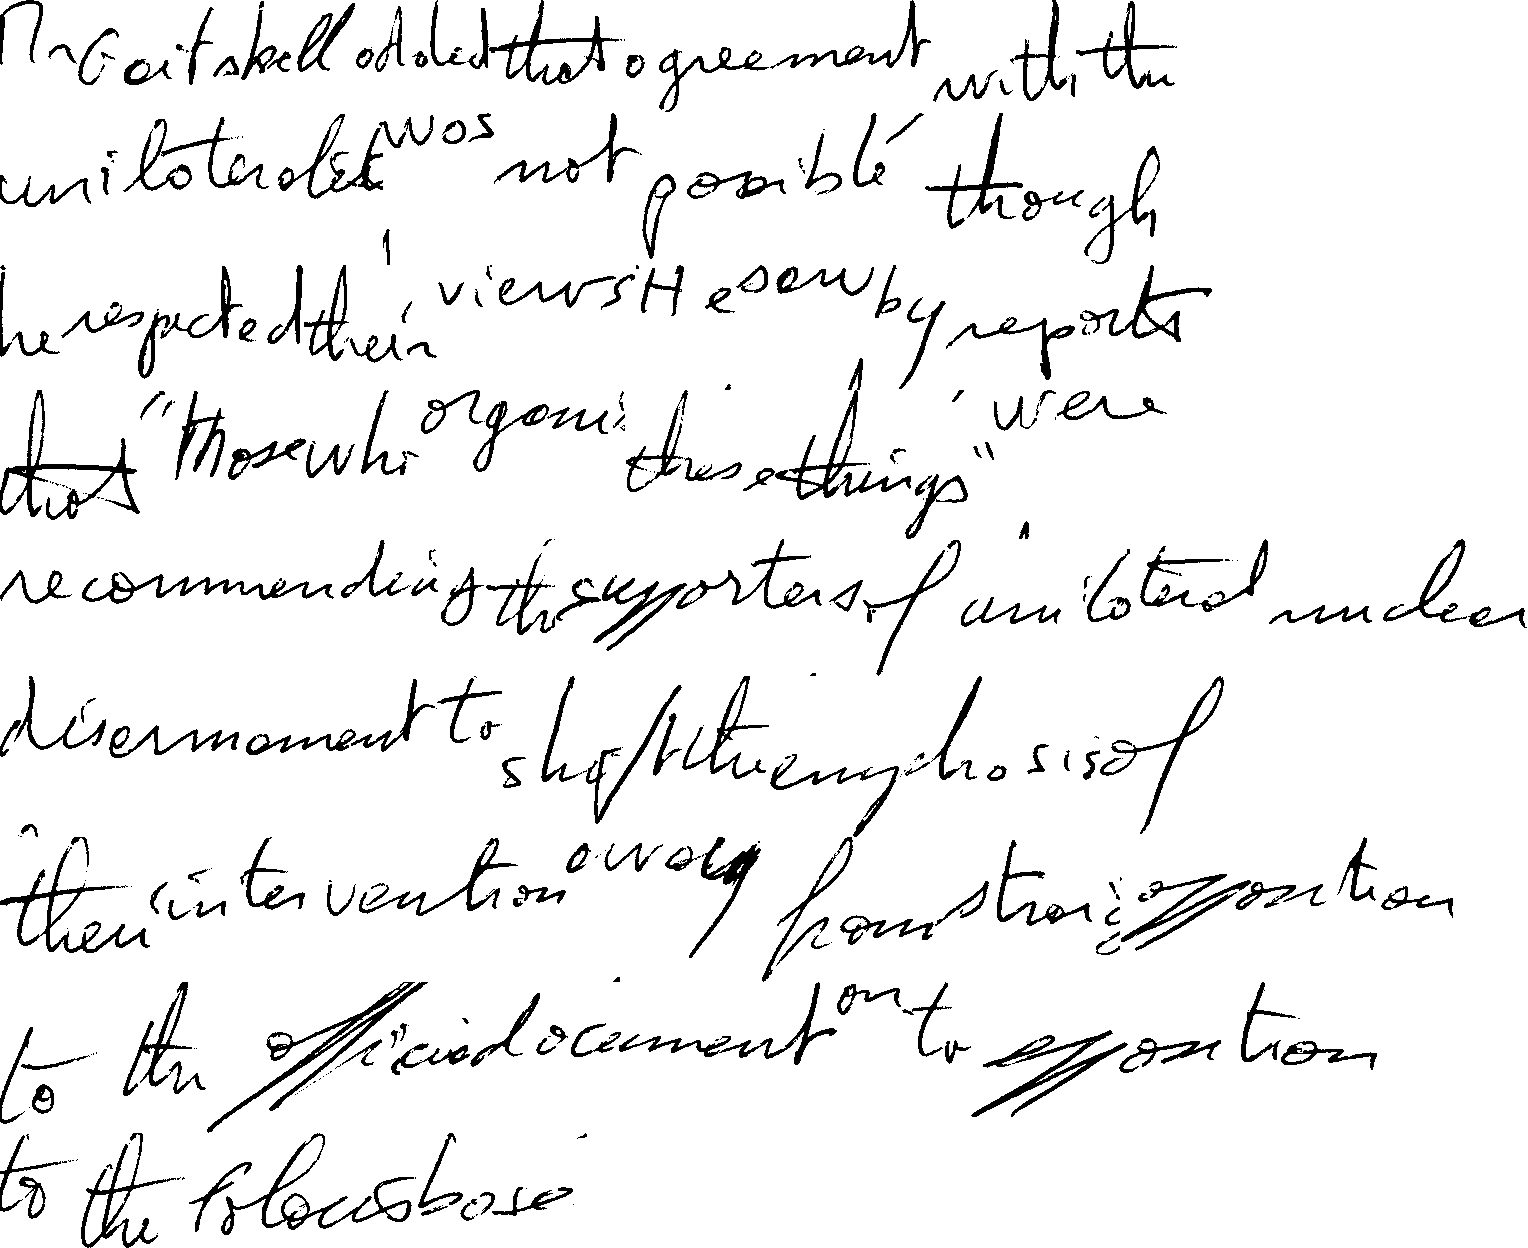 Mr Gaitskell added that agreement with the
unilateralist was not possible though
he respected their views He saw by reports
that "Those who organise these things" were
recommending the supporters of unilateral nuclear
disarmament to shift the emphasis of
their intervention away from straight opposition
to the official document on to opposition
to the Polaris base